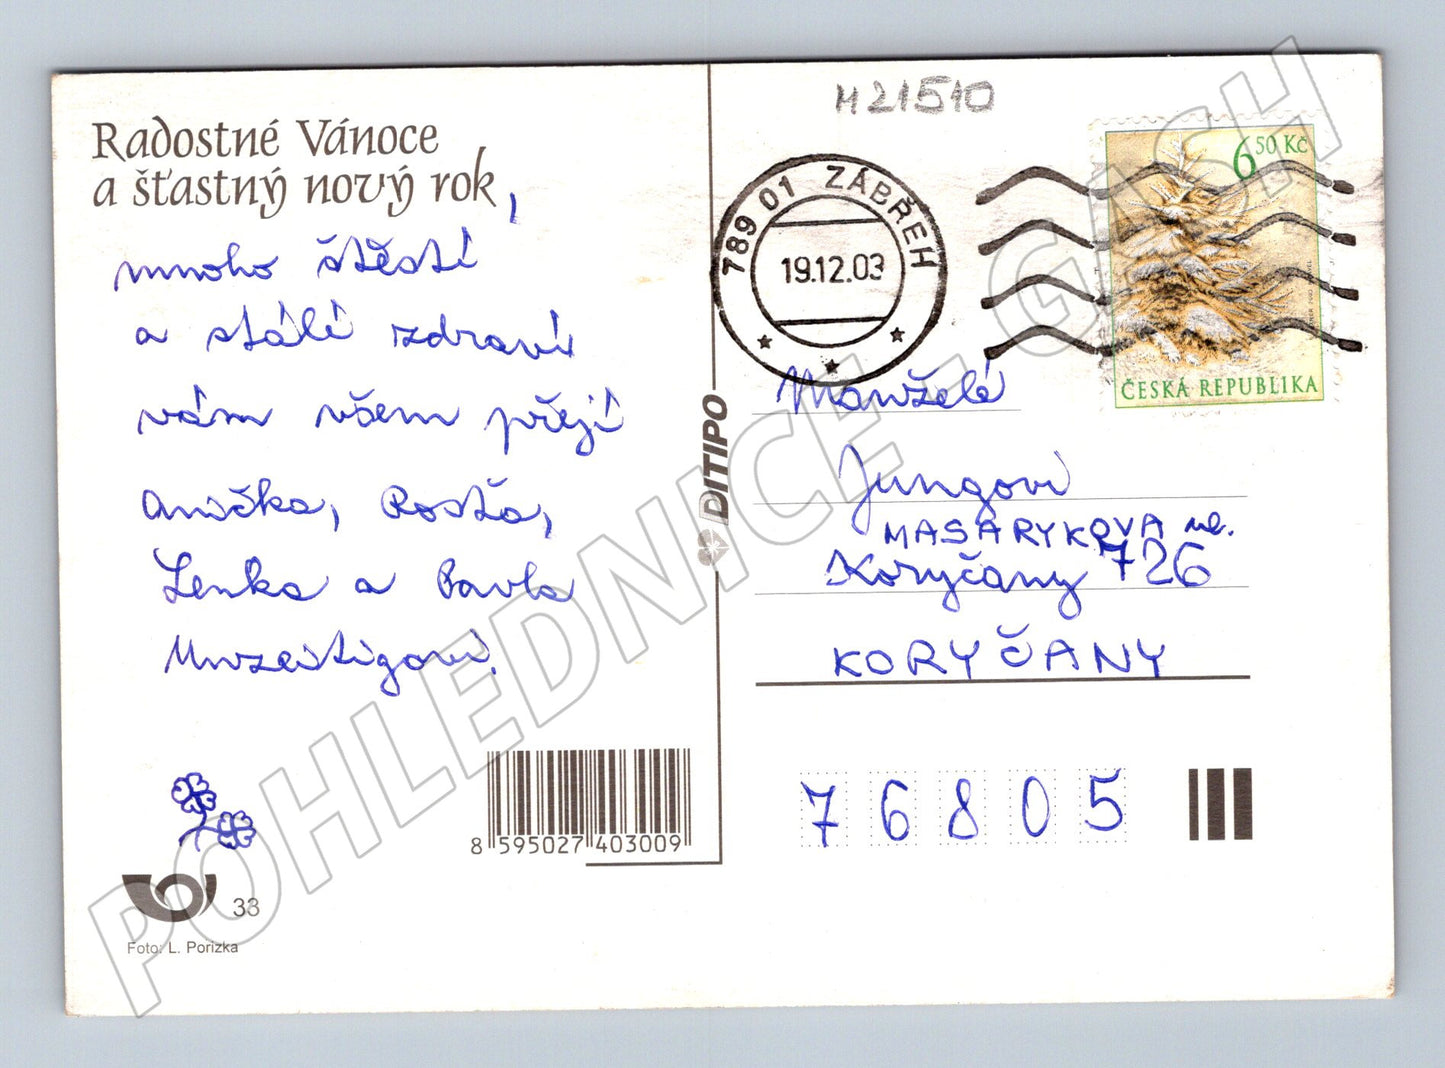 Radostné Vánoce
a šťastný nový rok,
mnoho štěstí
a stálé zdraví
vám všem přejí
Anička, Rosťa,
Lenka a Pavla
8 595027 403009
38
Foto: L. Porizka
DITIPO
M21510
789 01 ZÁBŘEH
19.12.03
6 50 Kč
ČESKÁ REPUBLIKA
Manželé
Jungovi
MASARYKOVA ul.
Koryčany 726
KORYČANY
76805
POHLEDNICE - GRISH